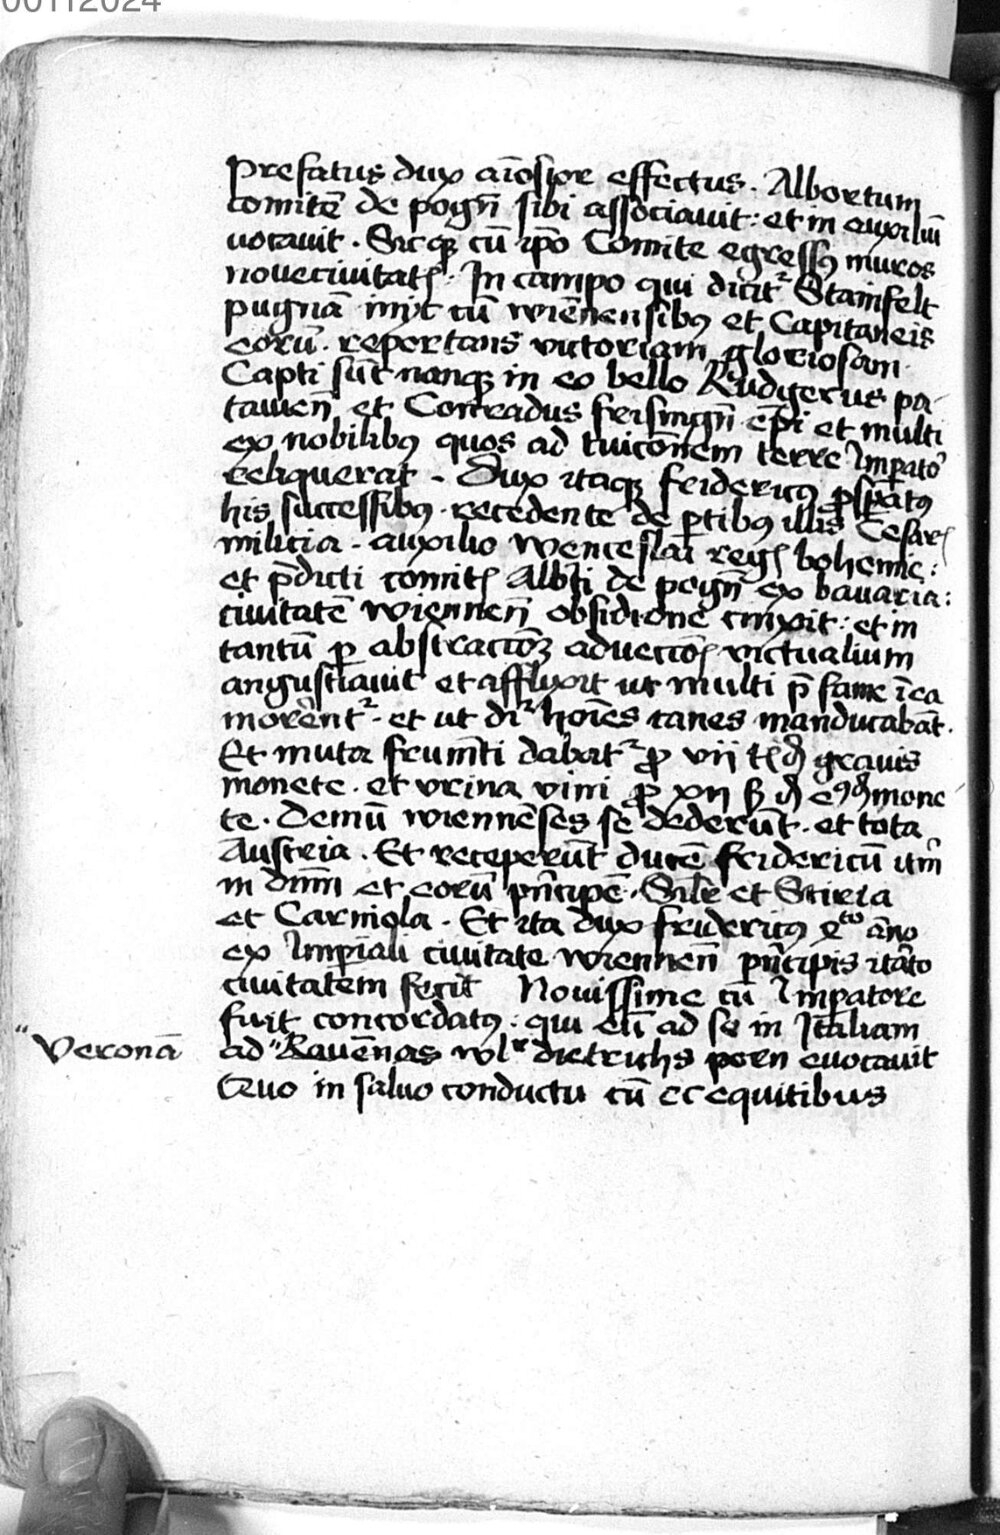 00112024
Prefatus dux aīosior effectus. Albertum
comitē de pogn̄ sibi associauit: et in auxiliū
uocauit. Sicqꝫ cū ip̄o Comite egressꝰ muros
nouecivitatꝭ. In campo qui dicit᷑ Stainfelt
pugnā iniyt cū wiēnensibꝰ et Capitaneis
eorū. reportans victoriam gloriosam.
Capti sūt nanqꝫ in eo bello Rudgerus pa-
tauien̄. et Conradus frisingn̄ ep̄i et multi
ex nobilibꝰ quos ad tuicōnem terre Imꝑator
reliquerat. Dux itaqꝫ fridericꝰ ꝓsꝑatꝰ
his successibꝰ. recedente de ꝑtibꝰ illis Cesarꝭ
milicia. auxilio wenceslai regꝭ bohemie:
et p̄dicti comitꝭ Alb̄ti de pogn̄ ex bauaria:
ciuitatē wiennen̄ obsidione cinxit: et in
tantū ꝑ abstraccōꝫ aduecciōꝭ victualium
angustiauit et afflixit ut multi p̄ fame ī ea
morērent᷑. et ut dr̄ hoīes canes manducabāt.
Et muta frum̄ti dabat᷑ ꝓ vii tl̄ ꝺ grauis
monete. et vrina vini ꝓ xii ß ꝺ eꝰꝺ mone
te. Demū wiennēses se dederūt. et tota
Austria. Et receperūt ducē fridericū itm̄
in dn̄m et eorū pn̄cipē. Silr̄ et Stiria
et Carniola. Et ita dux fridericꝰ qᵗᵒ āno
ex Imꝑiali ciuitate wiennen̄ pn̄cipis itāto
ciuitatem fecit Nouissime cū Imꝑatore
fuit concordatꝰ: qui eū ad se in Italiam
" Veronā
ad " Rauēnas vl᷑ dietrichs pern euocauit
Quo in saluo conductu cū cc equitibus